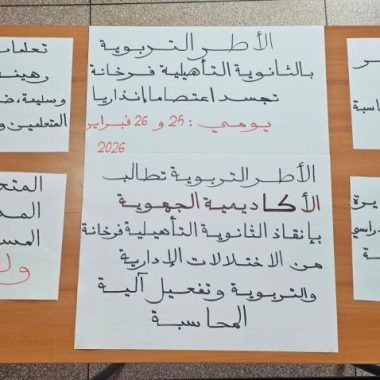 الأطر التربوية
بالثانوية التأهيلية فرخانة
تجسد اعتصاما إنذاريا
يومي : 25 و 26 فبراير
2026
الأطر التربوية تطالب
الأكاديمية الجهوية
بإنقاذ الثانوية التأهيلية فرخانة
من الاختلالات الإدارية
والتربوية وتفعيل آلية
المحاسبة
تعلمات
رهينة
وسليمة،
المتعلمين و
المتح
المد
المس
ول
ر
اسبة
يرة
راسي
ة